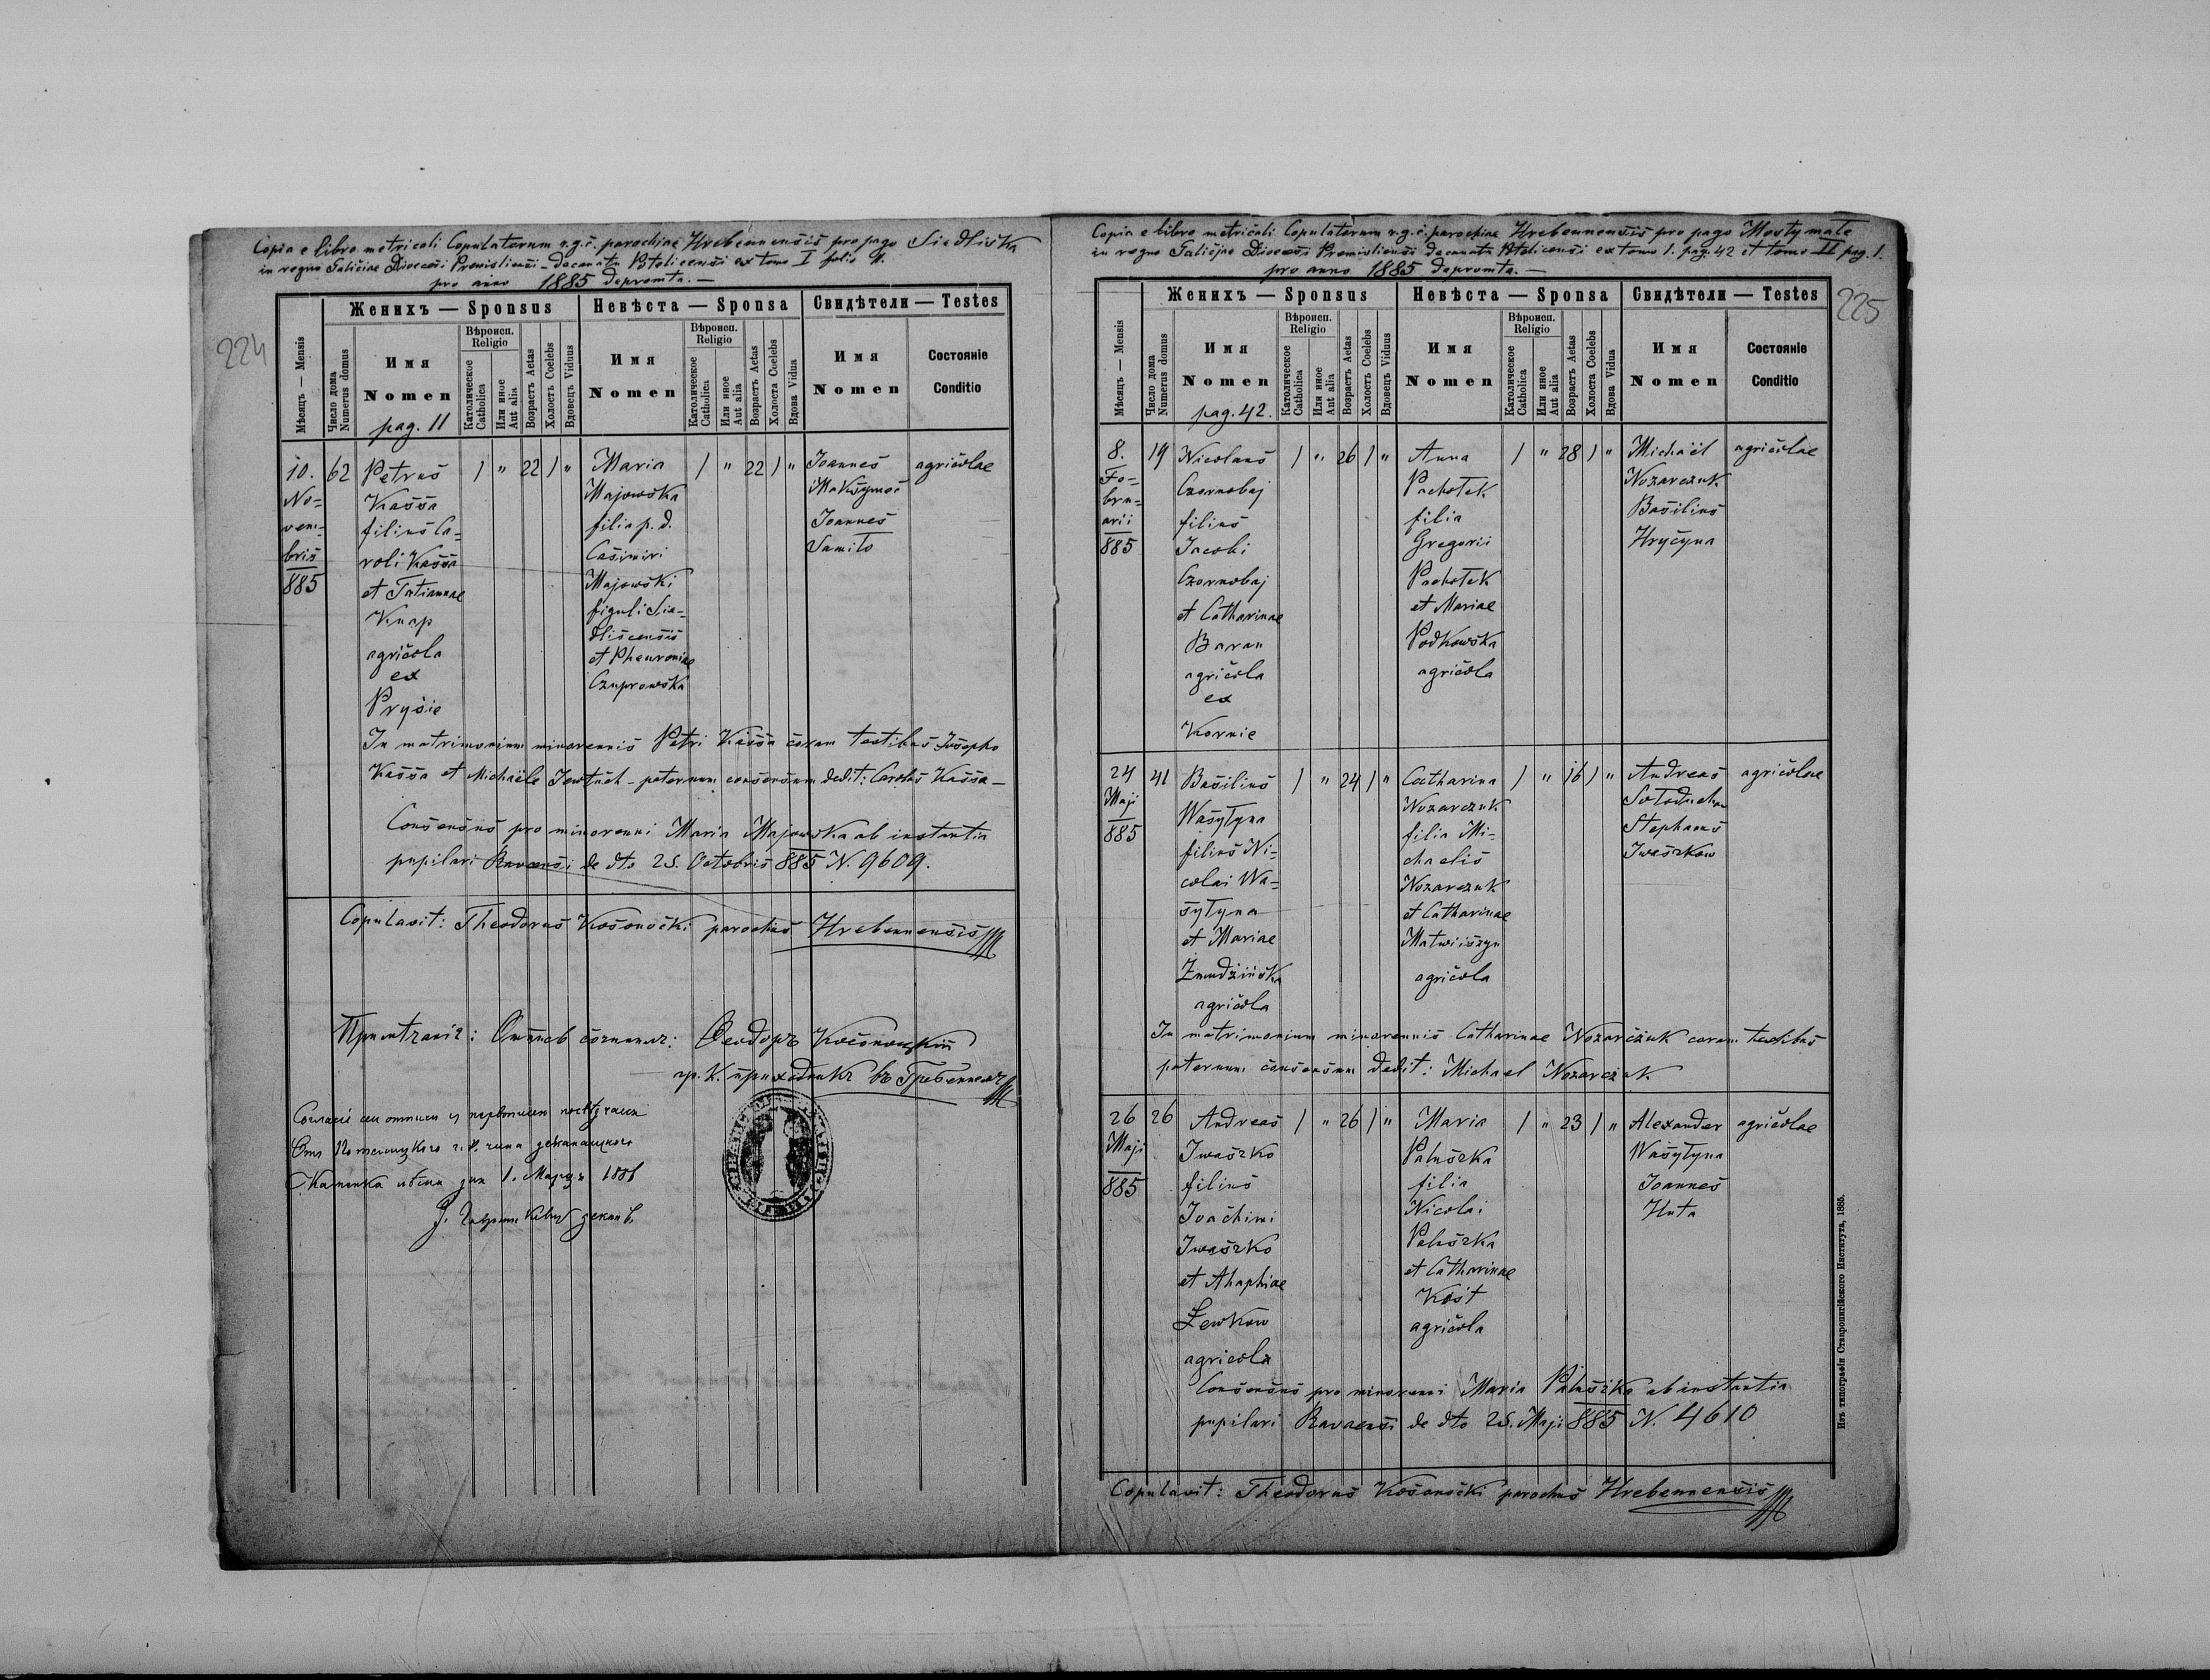 Copia e libro metricali Copulatorum r.g.c. parochiae Hrebennensis pro pago Siedliska
in regno Galiciae Dioecesi Premisliensi - decanatu Potelicensi ex tomo I folio 11.
pro anno 1885 depromta. —
224
Женихъ — Sponsus
Невѣста — Sponsa
Свидѣтели — Testes
Мѣсяцъ — Mensis
Число дома
Numerus domus
Имя
Nomen
pag. 11
Вѣроисп.
Religio
Католическое
Catholica
Или иное
Aut alia
Возрастъ Aetas
Холостъ Coelebs
Вдовецъ Viduus
Имя
Nomen
Вѣроисп.
Religio
Католическое
Catholica
Или иное
Aut alia
Возрастъ Aetas
Холоста Coelebs
Вдова Vidua
Имя
Nomen
Состояніе
Conditio
10.
No-
vem-
bris
885
62
Petrus
Kassa
filius Ca-
roli Kassa
et Tatiannae
Knap
agricola
ex
Prysie
1 " 22 1 "
Maria
Majowska
filia p. d.
Casimiri
Majowski
figuli Sie-
dliscensis
et Pheuroniae
Czuprowska
1 " 22 1 "
Joannes
Maksymec
Joannes
Samiło
agricolae
In matrimonium minorennis Petri Kassa coram testibus Josepho
Kassa et Michaële - paternum consensum dedit: Carolus Kassa —
Consensus pro minorenni Maria Majowska ab instantia
pupilari Ravaensi de dto 25. Octobris 885 N. 9609.
Copulavit: Theodorus Kosonocki parochus Hrebennensis
Примѣчаніе: Ѳеодоръ Косоноцкій
гр. к. приходникъ въ Гребенномъ
1. 1886
Copia e libro metricali Copulatorum r.g.c. parochiae Hrebennensis pro pago Mosty małe
in regno Galiciae Dioecesi Premisliensi decanatu Potelicensi ex tomo I. pag. 42 et tomo II pag. 1.
pro anno 1885 depromta. —
225
Женихъ — Sponsus
Невѣста — Sponsa
Свидѣтели — Testes
Мѣсяцъ — Mensis
Число дома
Numerus domus
Имя
Nomen
pag. 42.
Вѣроисп.
Religio
Католическое
Catholica
Или иное
Aut alia
Возрастъ Aetas
Холостъ Coelebs
Вдовецъ Viduus
Имя
Nomen
Вѣроисп.
Religio
Католическое
Catholica
Или иное
Aut alia
Возрастъ Aetas
Холоста Coelebs
Вдова Vidua
Имя
Nomen
Состояніе
Conditio
8.
Fe-
bru-
arii
885
19
Nicolaus
Czornobaj
filius
Jacobi
Czornobaj
et Catharinae
Baran
agricola
ex
Kornie
1 " 26 1 "
Anna
Pachołek
filia
Gregorii
Pachołek
et Mariae
Podkowska
agricola
1 " 28 1 "
Michaël
Nozarczuk
Basilius
Hrycyna
agricolae
24
Maji
885
41
Basilius
Wasyłyna
filius Ni-
colai Wa-
syłyna
et Mariae
Żmudzińska
agricola
1 " 24 1 "
Catharina
Nozarczuk
filia Mi-
chaelis
Nozarczuk
et Catharinae
Matwiiszyn
agricola
1 " 16 1 "
Andreas
Sołoducha
Stephanus
Iwaszkow
agricolae
In matrimonium minorennis Catharinae Nozarczuk coram testibus
paternum consensum dedit: Michael Nozarczuk
26
Maji
885
26
Andreas
Iwaszko
filius
Joachimi
Iwaszko
et Ahaphiae
Lewkow
agricola
1 " 26 1 "
Maria
Paluszka
filia
Nicolai
Paluszka
et Catharinae
Kost
agricola
1 " 23 1 "
Alexander
Wasyłyna
Joannes
Huta
agricolae
Consensus pro minorenni Maria Paluszka ab instantia
pupilari Ravaensi de dto 25. Maji 885 N. 4610
Copulavit: Theodorus Kosonocki parochus Hrebennensis
Изъ типографіи Ставропигійского Института, 1885.